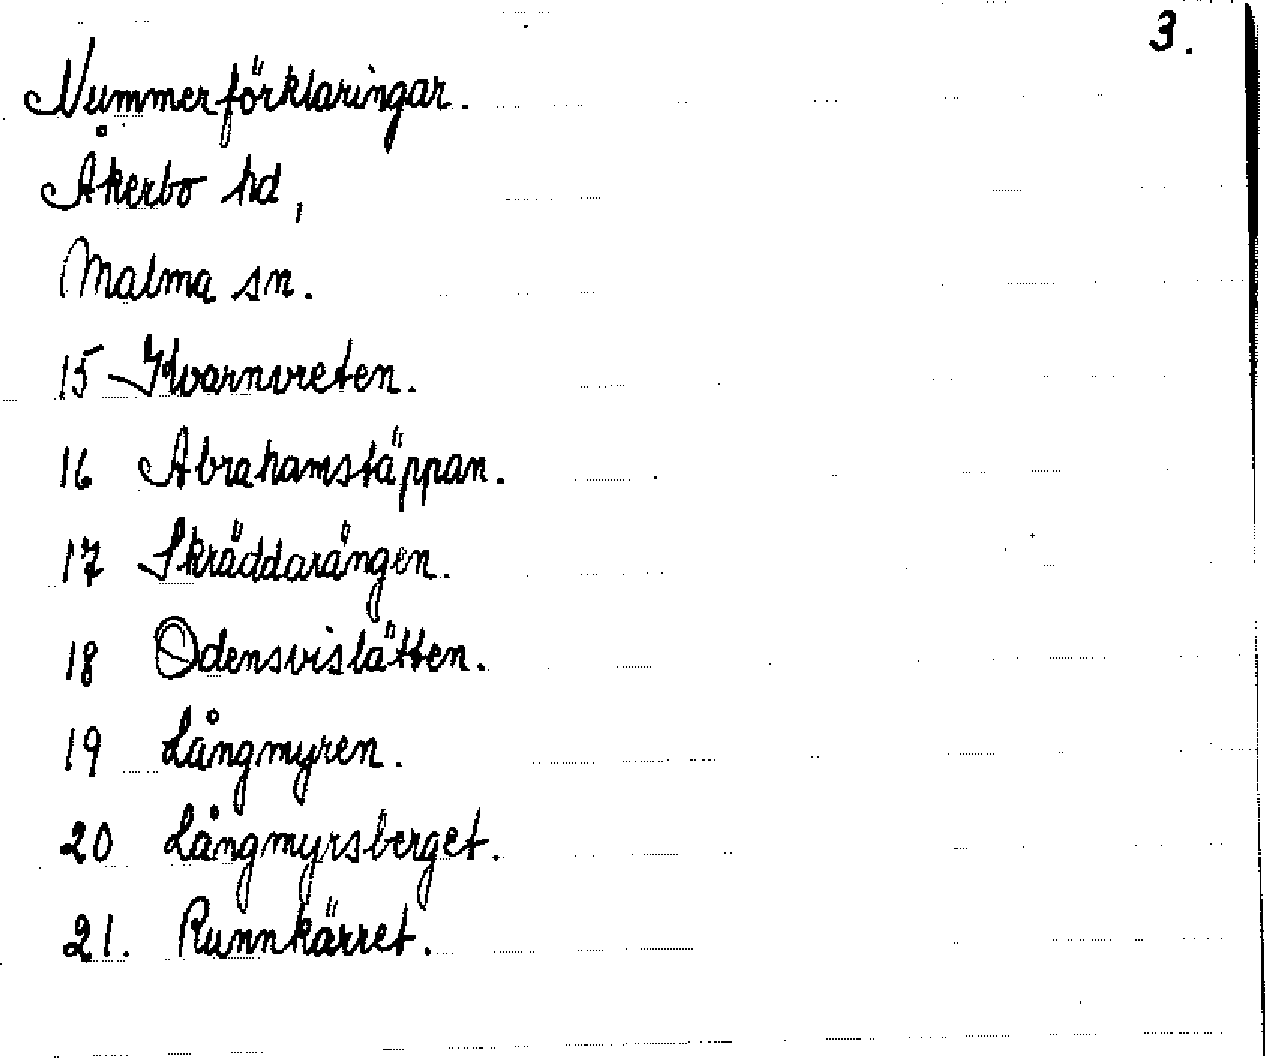 3.
Nummerförklaringar.
Åkerbo hd,
Malma sn.
15 Kvarnvreten.
16 Abrahamstäppan.
17 Skräddarängen.
18 Odensvislätten.
19 Långmyren.
20 Långmyrsberget.
21. Runnkärret.